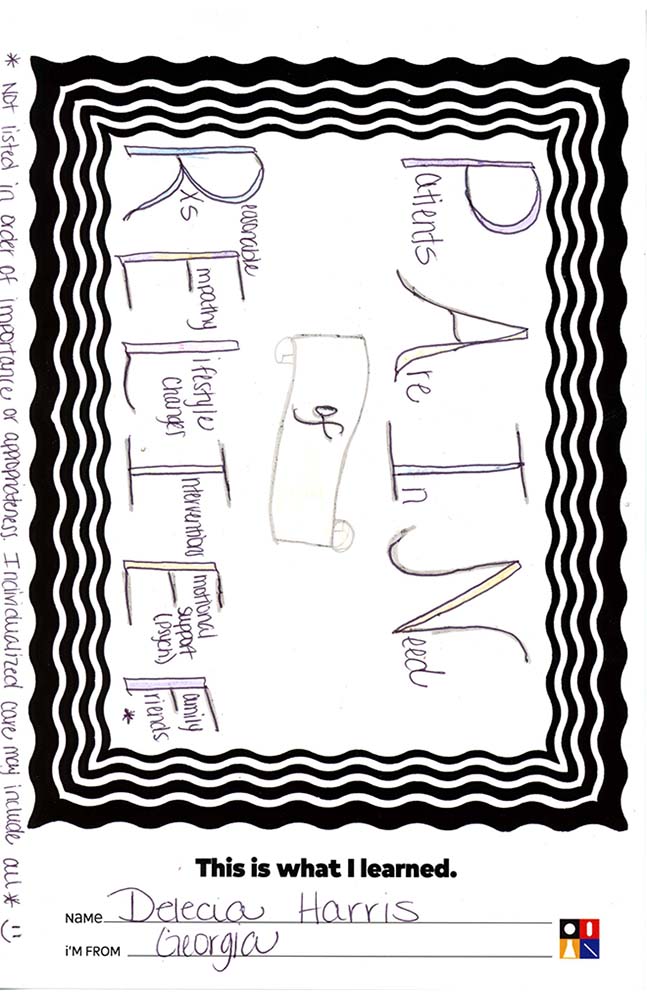 Patients Are In Need
of
Reasonable
Rxs
Empathy
Lifestyle
Changes
Interventions
Emotional
Support
(Psych)
Family
Friends
*
* Not listed in order of importance or appropriateness. Individualized care may include all * :)
This is what I learned.
NAME Delecia Harris
i'M FROM Georgia